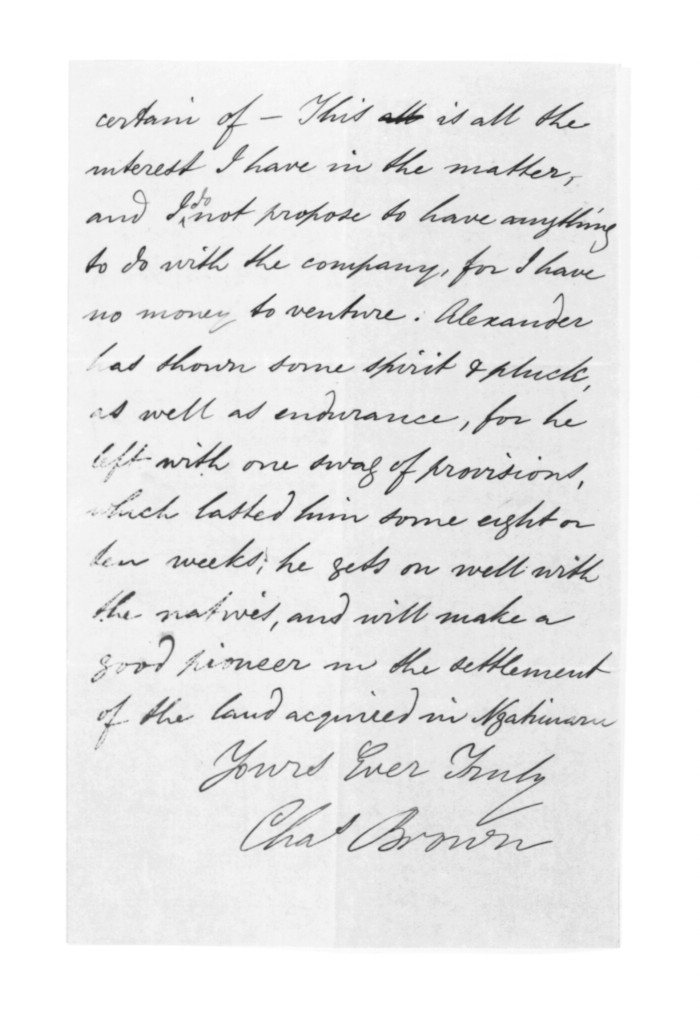 certain of – This all is all the
interest I have in the matter,
and I do not propose to have anything
to do with the company, for I have
no money to venture. Alexander
has shown some spirit & pluck,
as well as endurance, for he
left with one swag of provisions,
which lasted him some eight or
ten weeks; he gets on well with
the natives, and will make a
good pioneer in the settlement
of the land acquired in Ngatimaru
Yours Ever Truly
Chas Brown